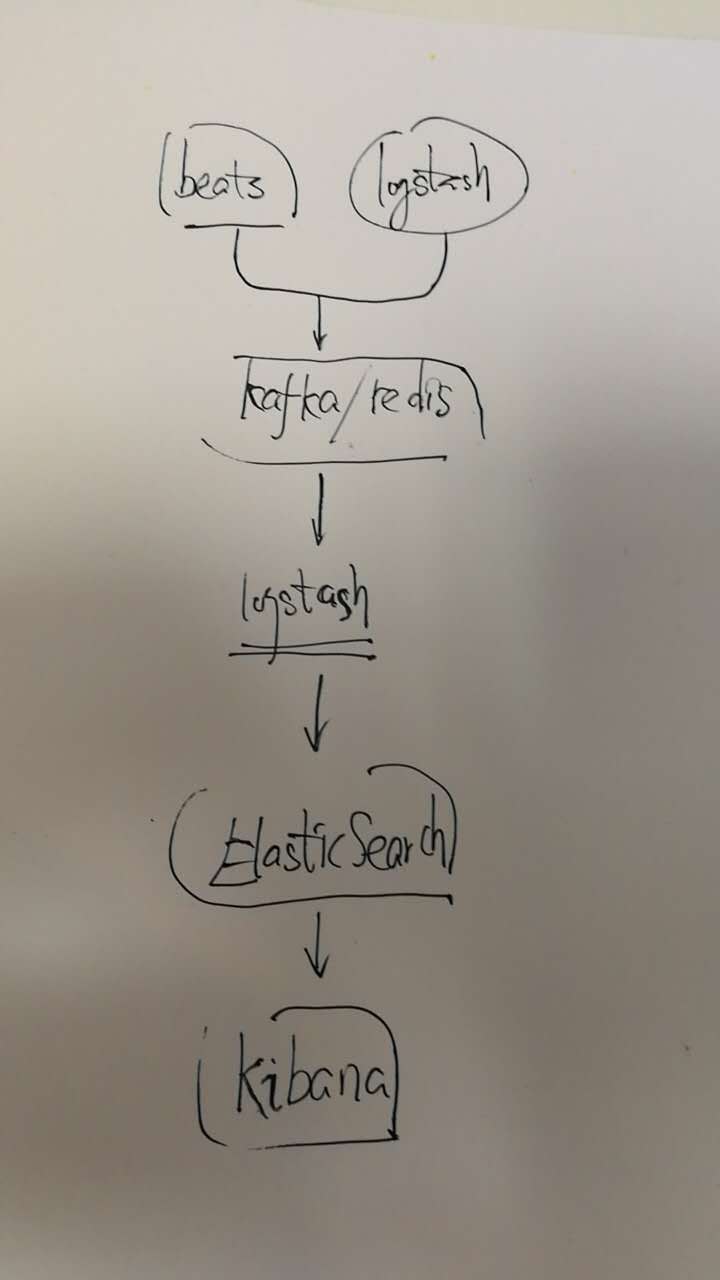 beats logstash
kafka/redis
logstash
ElasticSearch
Kibana